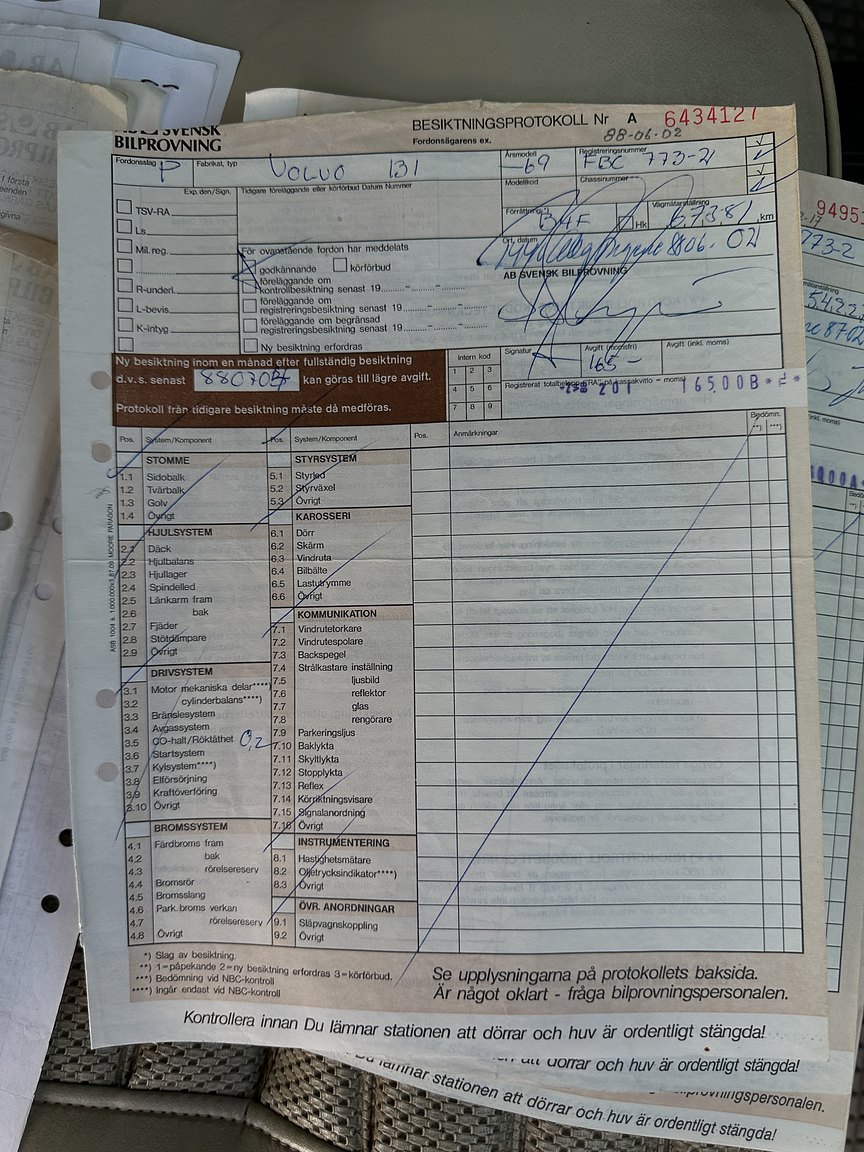 AB SVENSK
BILPROVNING
BESIKTNINGSPROTOKOLL Nr A 6434127
Fordonsägarens ex. 88-06-02
Fordonsslag P
Fabrikat, typ VOLVO 131
Årsmodell -69
Registreringsnummer FBC 773-2
Modellkod
Chassinummer
Exp.den/Sign.
Tidigare föreläggande eller körförbud Datum Nummer
Förrättning*)
Hk
Vägmätarställning 67381 ,km
TSV-RA
Ls
Mil.reg.
R-underl.
L-bevis
K-intyg
För ovanstående fordon har meddelats
godkännande
körförbud
föreläggande om
kontrollbesiktning senast 19
föreläggande om
registreringsbesiktning senast 19
föreläggande om begränsad
registreringsbesiktning senast 19
Ny besiktning erfordras
Ort, datum 8806. 02
AB SVENSK BILPROVNING
Ny besiktning inom en månad efter fullständig besiktning
d.v.s. senast kan göras till lägre avgift.
Protokoll från tidigare besiktning måste då medföras.
Intern kod
1 2 3
4 5 6
7 8 9
Signatur
Avgift (momsfri) 165-
Avgift (inkl. moms)
201 165.00B*
Pos. System/Komponent
Pos. System/Komponent
Pos. Anmärkningar
Bedömn.
**) ***)
STOMME
1.1 Sidobalk
1.2 Tvärbalk
1.3 Golv
1.4 Övrigt
HJULSYSTEM
2.1 Däck
2.2 Hjulbalans
2.3 Hjullager
2.4 Spindelled
2.5 Länkarm fram
2.6 bak
2.7 Fjäder
2.8 Stötdämpare
2.9 Övrigt
DRIVSYSTEM
3.1 Motor mekaniska delar****)
3.2 cylinderbalans****)
3.3 Bränslesystem
3.4 Avgassystem
3.5 CO-halt/Röktäthet 0,2
3.6 Startsystem
3.7 Kylsystem****)
3.8 Elförsörjning
3.9 Kraftöverföring
3.10 Övrigt
BROMSSYSTEM
4.1 Färdbroms fram
4.2 bak
4.3 rörelsereserv
4.4 Bromsrör
4.5 Bromsslang
4.6 Park.broms verkan
4.7 rörelsereserv
4.8 Övrigt
STYRSYSTEM
5.1 Styrled
5.2 Styrväxel
5.3 Övrigt
KAROSSERI
6.1 Dörr
6.2 Skärm
6.3 Vindruta
6.4 Bilbälte
6.5 Lastutrymme
6.6 Övrigt
KOMMUNIKATION
7.1 Vindrutetorkare
7.2 Vindrutespolare
7.3 Backspegel
7.4 Strålkastare inställning
7.5 ljusbild
7.6 reflektor
7.7 glas
7.8 rengörare
7.9 Parkeringsljus
7.10 Baklykta
7.11 Skyltlykta
7.12 Stopplykta
7.13 Reflex
7.14 Körriktningsvisare
7.15 Signalanordning
7.16 Övrigt
INSTRUMENTERING
8.1 Hastighetsmätare
8.2 Oljetrycksindikator****)
8.3 Övrigt
ÖVR. ANORDNINGAR
9.1 Släpvagnskoppling
9.2 Övrigt
*) Slag av besiktning.
**) 1=påpekande 2=ny besiktning erfordras 3=körförbud.
***) Bedömning vid NBC-kontroll
****) Ingår endast vid NBC-kontroll
Se upplysningarna på protokollets baksida.
Är något oklart - fråga bilprovningspersonalen.
Kontrollera innan Du lämnar stationen att dörrar och huv är ordentligt stängda!
att dörrar och huv är ordentligt stängda!
bilprovningspersonalen.
Du lämnar stationen att dörrar och huv är ordentligt stängda!